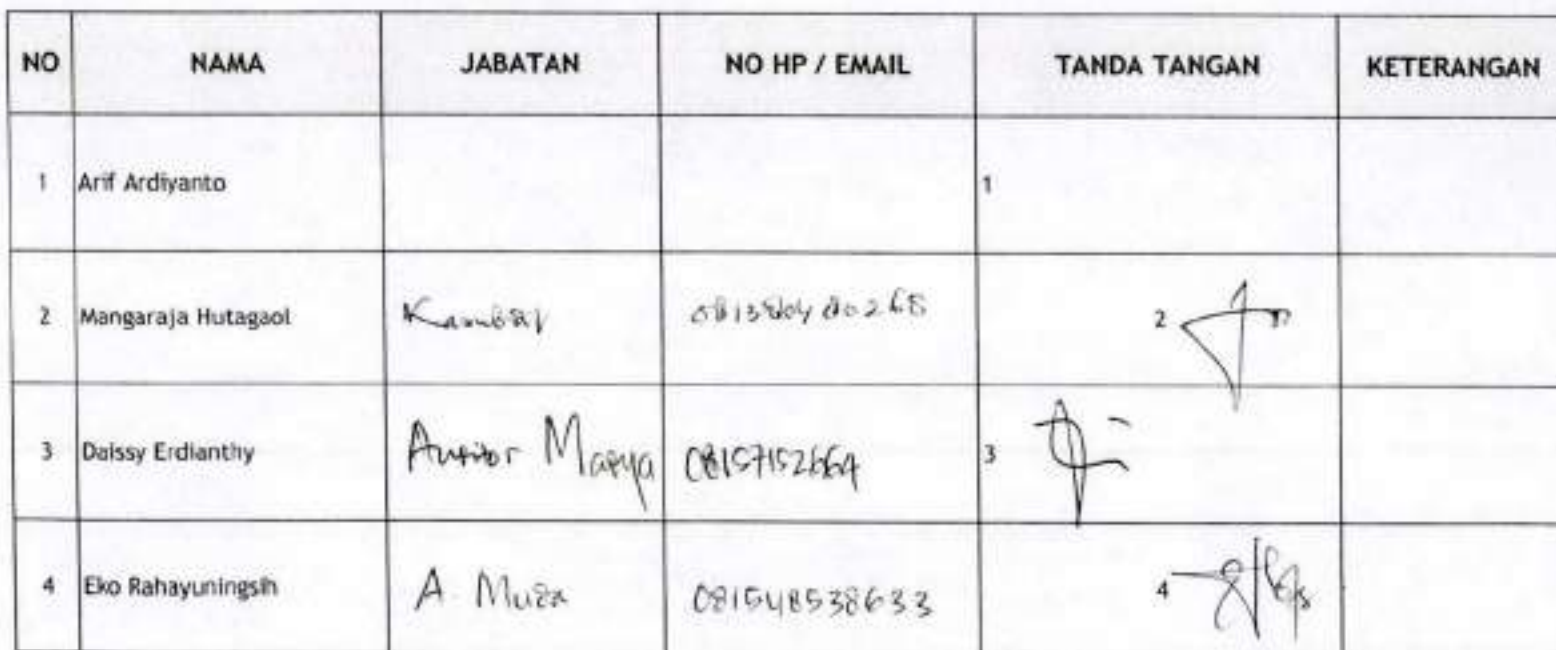 NO NAMA JABATAN NO HP / EMAIL TANDA TANGAN KETERANGAN
1 Arif Ardiyanto 1
2 Mangaraja Hutagaol 2
3 Daissy Erdianthy Auditor Madya 08157152664 3
4 Eko Rahayuningsih A. Muda 081548538633 4